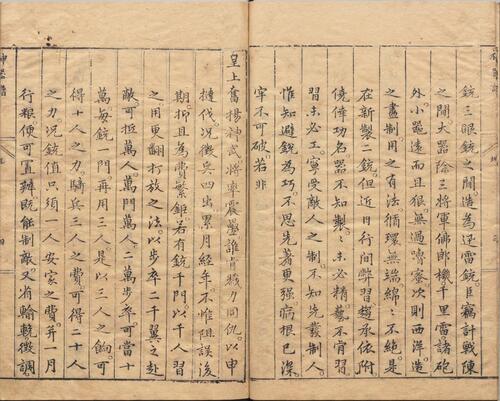 銃三眼銃之間造為迅雷銃。臣竊計戰陳
之間。大器除三將軍佛郎機千里雷諸砲
外。小器遠而且狠無過嚕蜜。次則西洋。造
之盡制用之有法循環無端綿〻不絕。是
在新製二銃。但近日行間弊習趨承依附
僥倖功名。器不知製〻未必精。藝不肯習
習未必工。寧受敵人之制。不知先發制人。
惟知避銳為巧。不思先著更强。病根已深。
牢不可破。若非
皇上奮揚神武。將寧震墨。誰肯戮力同仇。以申
撻伐。况徵兵四出。累月經年。不惟阻誤後
期。抑且為費繁鉅。若有銃千門。以千人習
之用更翻打放之法。以步卒二千翼之赴
敵。可抵萬人。萬門萬人。二萬步卒。可當十
萬。每銃一門再用三人。是以三人之餉。可
得十人之力。騎兵三人之費。可得二十人
之力。况銃值只須一人安家之費。并一月
行糧。便可置辦。既能制敵。又省輸輓徵調